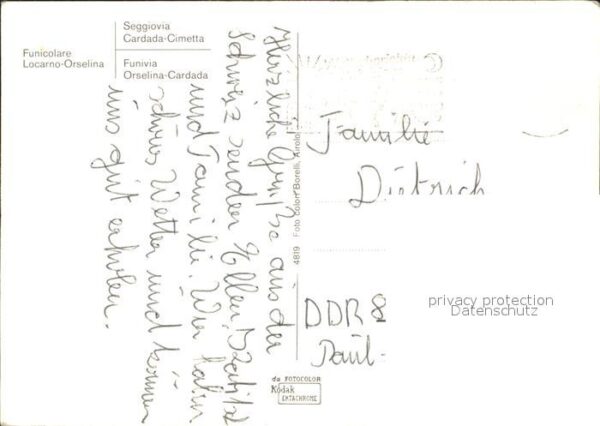 Seggiovia
Cardada-Cimetta
Funicolare
Locarno-Orselina
Funivia
Orselina-Cardada
Herzliche Grüße aus der
Schweiz senden Ellen,
und Familie. Wir haben
schönes Wetter und können
uns gut erholen.
4819 Foto colori Borelli, Airolo
Familie
Dietrich
DDR 8
Paul-
privacy protection
Datenschutz
da FOTOCOLOR
Kodak
EKTACHROME